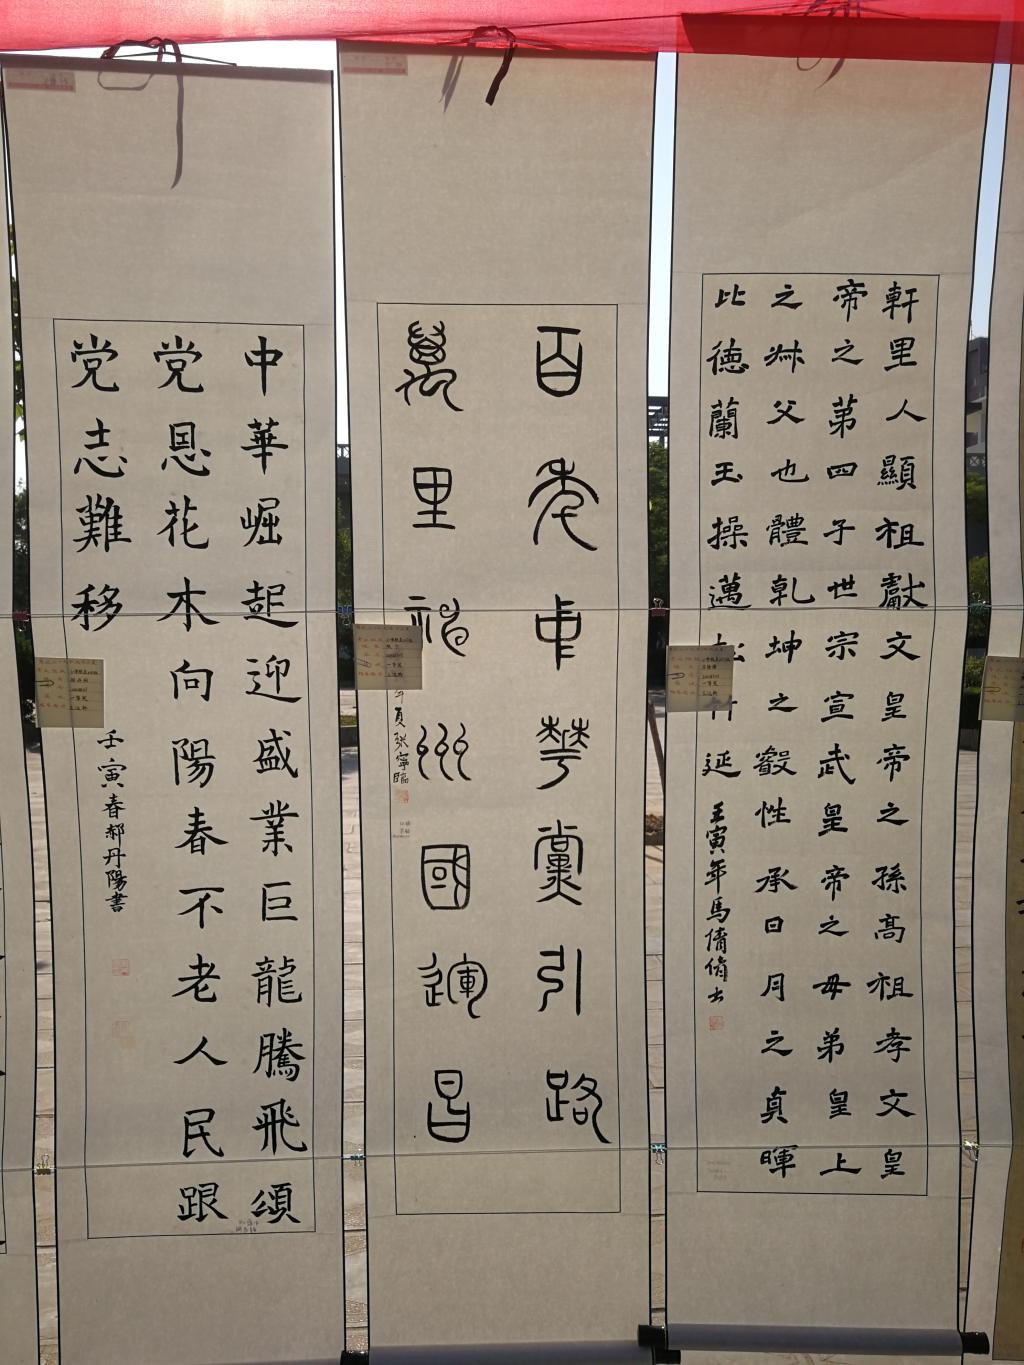 軒里人顯祖獻文皇帝之孫高祖孝文皇
帝之第四子世宗宣武皇帝之母弟皇上
之叔父也體乾坤之叡性承日月之貞暉
比德蘭玉操邁松竹延
壬寅年馬倩倩书
百年中華黨引路
萬里神州國運昌
年夏张寧臨
中華崛起迎盛業巨龍騰飛頌
党恩花木向陽春不老人民跟
党志難移
壬寅春郝丹陽書